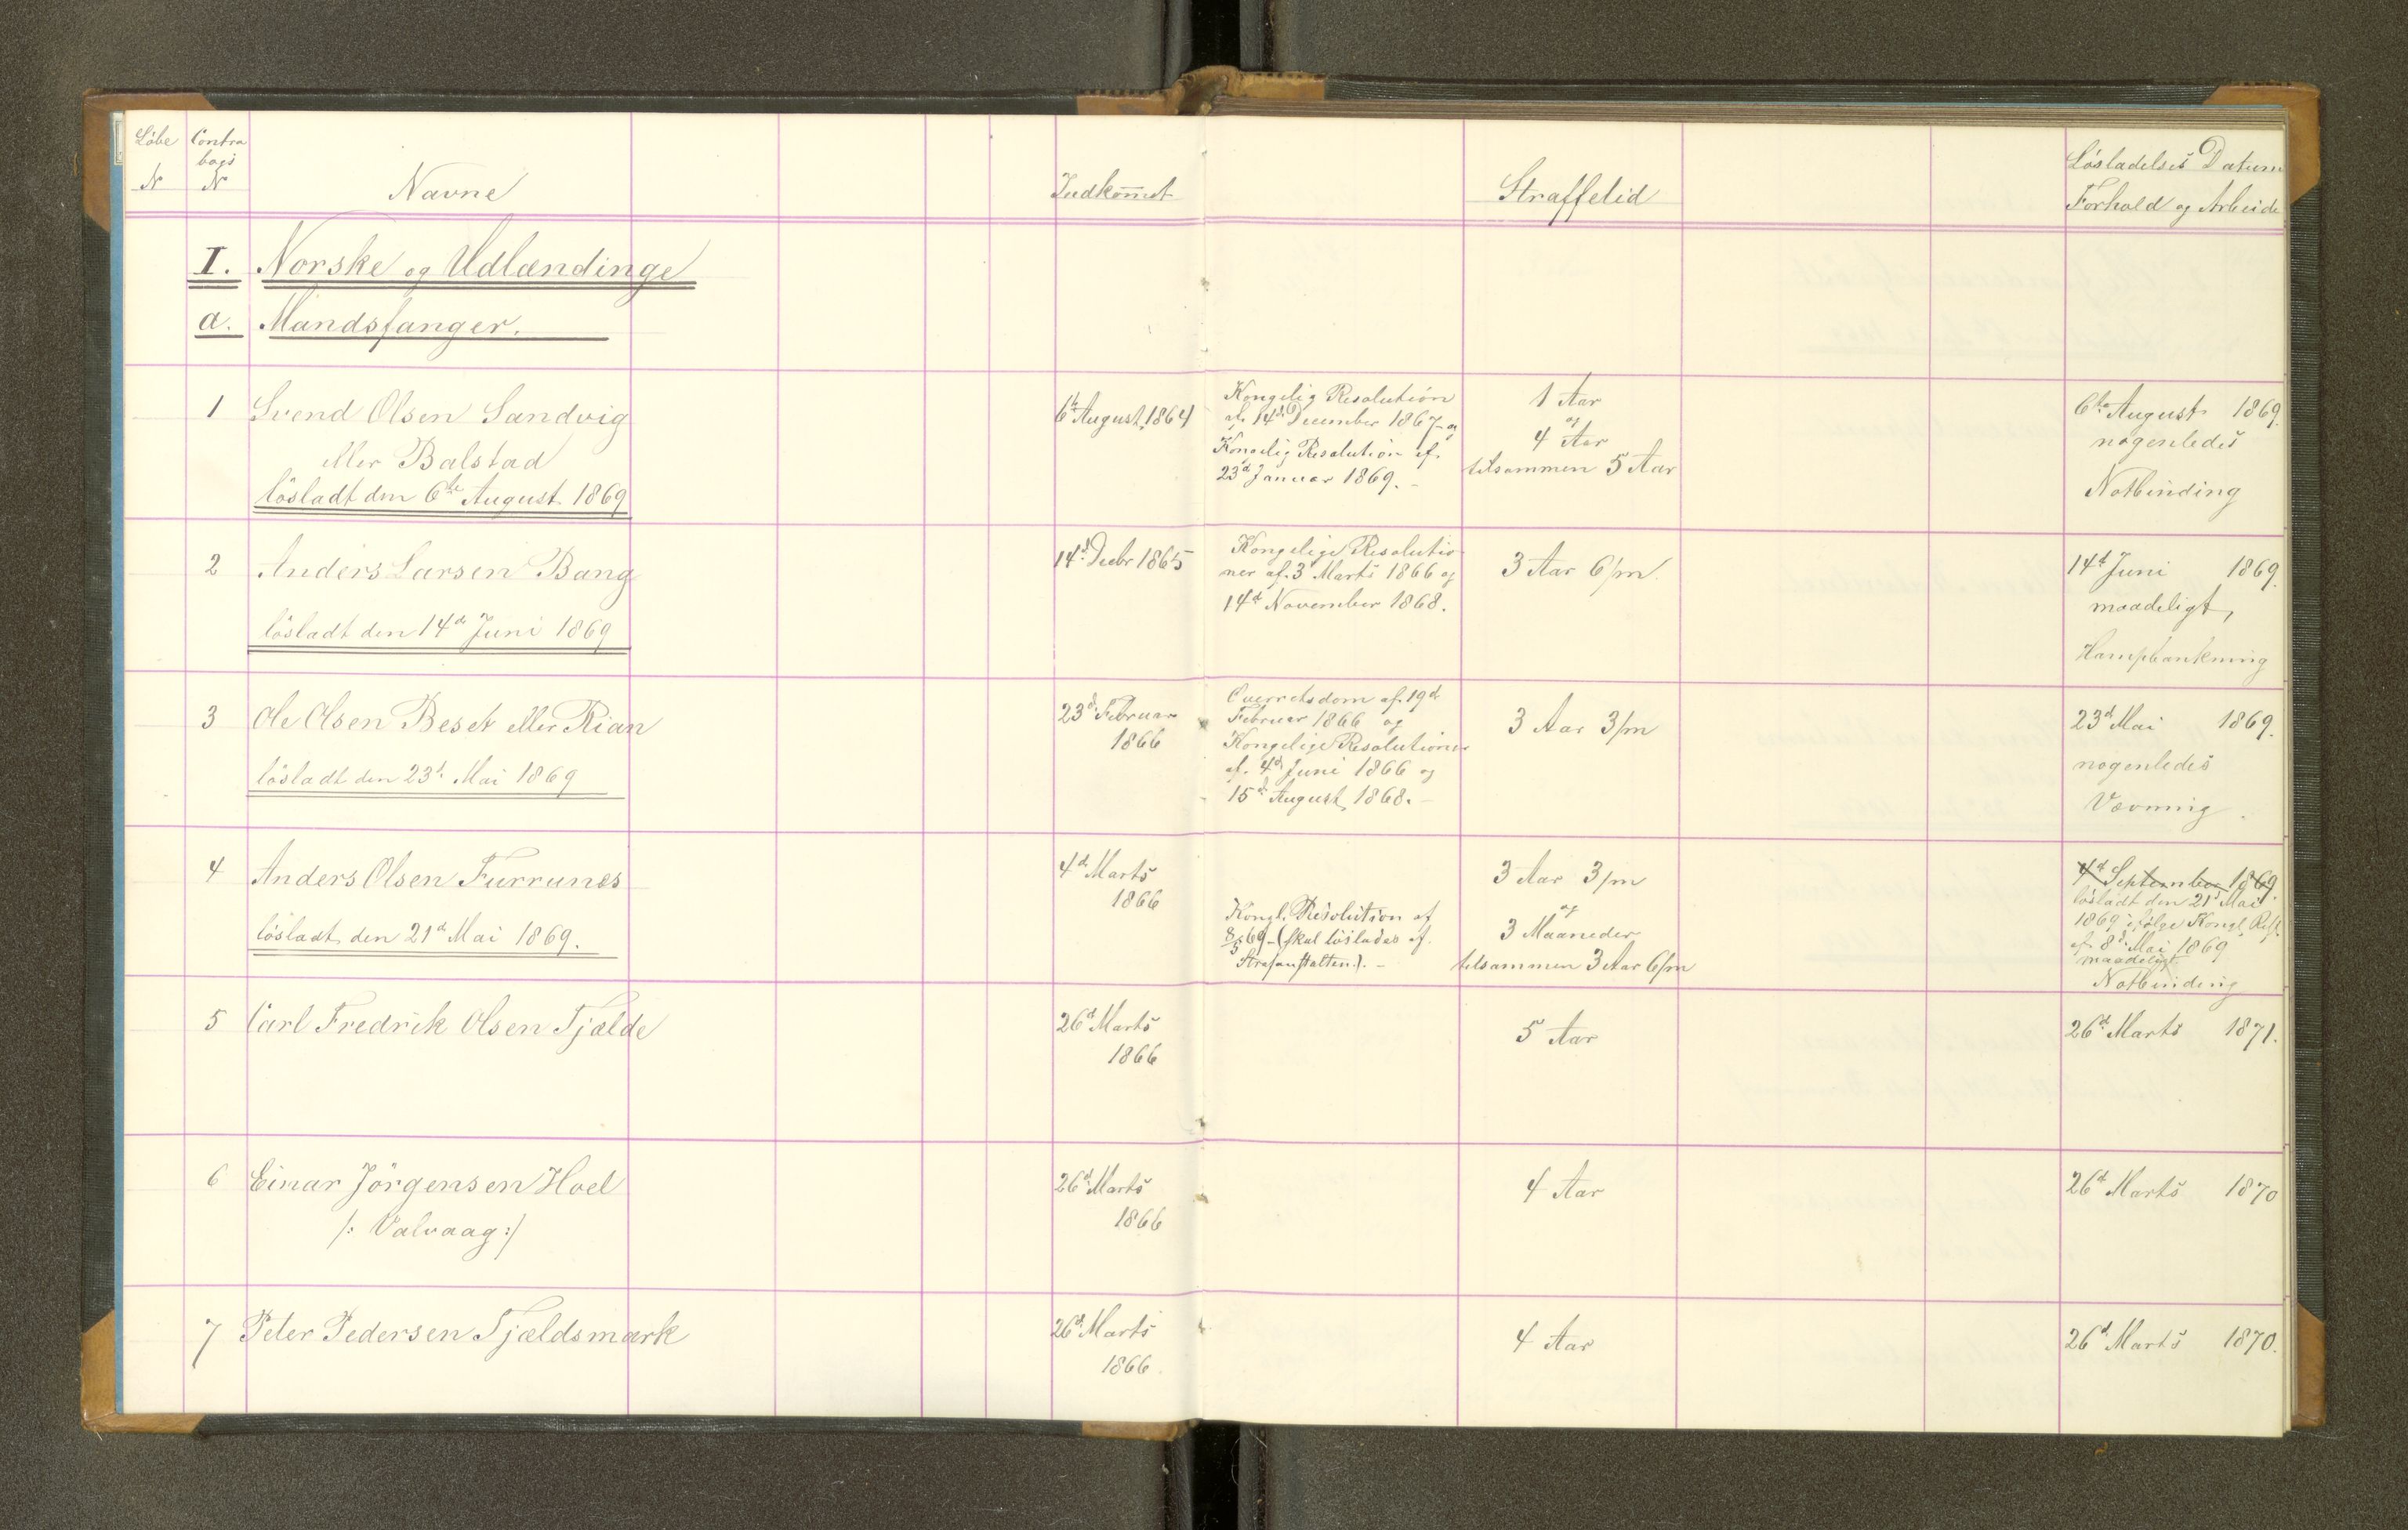 Löbe
N
Contra
bogs
N
Navne
Indkom̄et
Straffetid
Lösladelses Datum
Forhold og Arbeide
I. Norske og Udlændinge
a. Mandsfanger.
1 Svend Olsen Sandvig
eller Balstad
lösladt den 6te August 1869
6te August 1864
Kongelig Resolution
af 14d December 1867 og
Kongelig Resolution af
23d Januar 1869. -
1 Aar
og
4 Aar
tilsammen 5 Aar
6te August 1869.
nogenledes
Notbinding
2 Anders Larsen Bang
lösladt den 14d Juni 1869
14d Decbr 1865
Kongelige Resolutio-
ner af 3 Marts 1866 og
14d November 1868.
3 Aar 6/m.
14d Juni 1869.
maadeligt,
Hampbankning
3 Ole Olsen Beset eller Rian
lösladt den 23d Mai 1869
23d Februar
1866
Overretsdom af 19d
Februar 1866 og
Kongelige Resolutioner
af 4d Juni 1866 og
15d August 1868. -
3 Aar 3/m
23d Mai 1869.
nogenledes
Vævning.
4 Anders Olsen Furrunes
lösladt den 21d Mai 1869.
4d Marts
1866
Kongl. Resolution af
8/5 69 - (skal löslades af
Strafanstalten). -
3 Aar 3/m
og
3 Maaneder
tilsammen 3 Aar 6/m
4d September 1869.
lösladt den 21d Mai
1869 ifölge Kongl. Res.
af 8d Mai 1869
maadeligt
Notbinding
5 Carl Fredrik Olsen Fjælde
26d Marts
1866
5 Aar
26d Marts 1871.
6 Einar Jörgensen Hoel
/: Valvaag :/
26d Marts
1866
4 Aar
26d Marts 1870
7 Peter Pedersen Fjældsmark
26d Marts
1866.
4 Aar
26d Marts 1870.